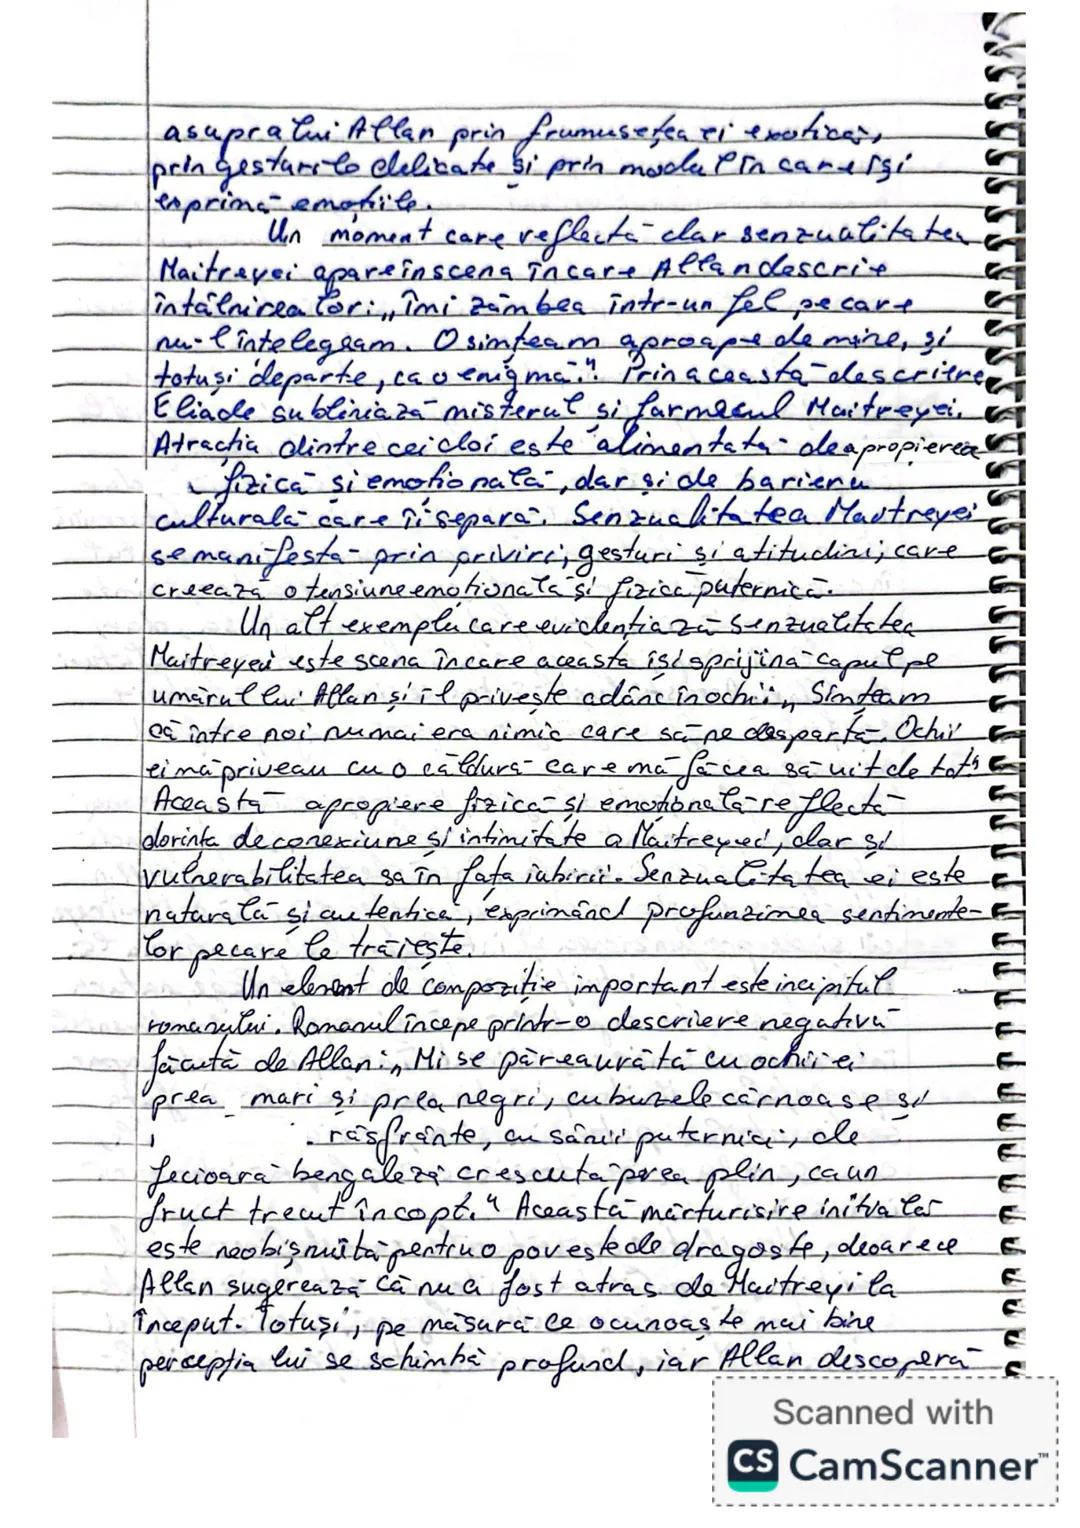 asupra lui Allan prin frumusețea ei exotică,
prin gesturile delicate și prin modul în care își
exprimă emoțiile.
Un moment care reflectă clar senzualitatea
Maitreyei apare în scena în care Allan descrie
întâlnirea lor: „Îmi zâmbea într-un fel pe care
nu-l întelegeam. O simțeam aproape de mine, și
totuși departe, ca o enigmă." Prin această descriere
Eliade subliniază misterul și farmecul Maitreyei.
Atracția dintre cei doi este alimentată de apropierea
fizică și emoțională, dar și de bariera
culturală care îi separă. Senzualitatea Maitreyei
se manifestă prin priviri, gesturi și atitudini, care
creează o tensiune emoțională și fizică puternică.
Un alt exemplu care evidențiază senzualitatea
Maitreyei este scena în care aceasta își sprijină capul pe
umărul lui Allan și îl privește adânc în ochi: „Simțeam
că între noi nu mai era nimic care să ne despartă. Ochii
ei mă priveau cu o căldură care mă făcea să uit de tot"
Această apropiere fizică și emoțională reflectă
dorința de conexiune și intimitate a Maitreyei, dar și
vulnerabilitatea sa în fața iubirii. Senzualitatea ei este
naturală și autentică, exprimând profunzimea sentimente-
lor pe care le trăiește.
Un element de compoziție important este incipitul
romanului. Romanul începe printr-o descriere negativă
făcută de Allan: „Mi se părea urâtă cu ochii ei
prea mari și prea negri, cu buzele cărnoase și
răsfrânte, cu sânii puternici, de
fecioară bengaleză crescută prea plin, ca un
fruct trecut în copt." Această mărturisire inițială
este neobișnuită pentru o poveste de dragoste, deoarece
Allan sugerează că nu a fost atras de Maitreyi la
început. Totuși, pe măsură ce o cunoaște mai bine
percepția lui se schimbă profund, iar Allan descoperă
Scanned with
CS CamScanner™